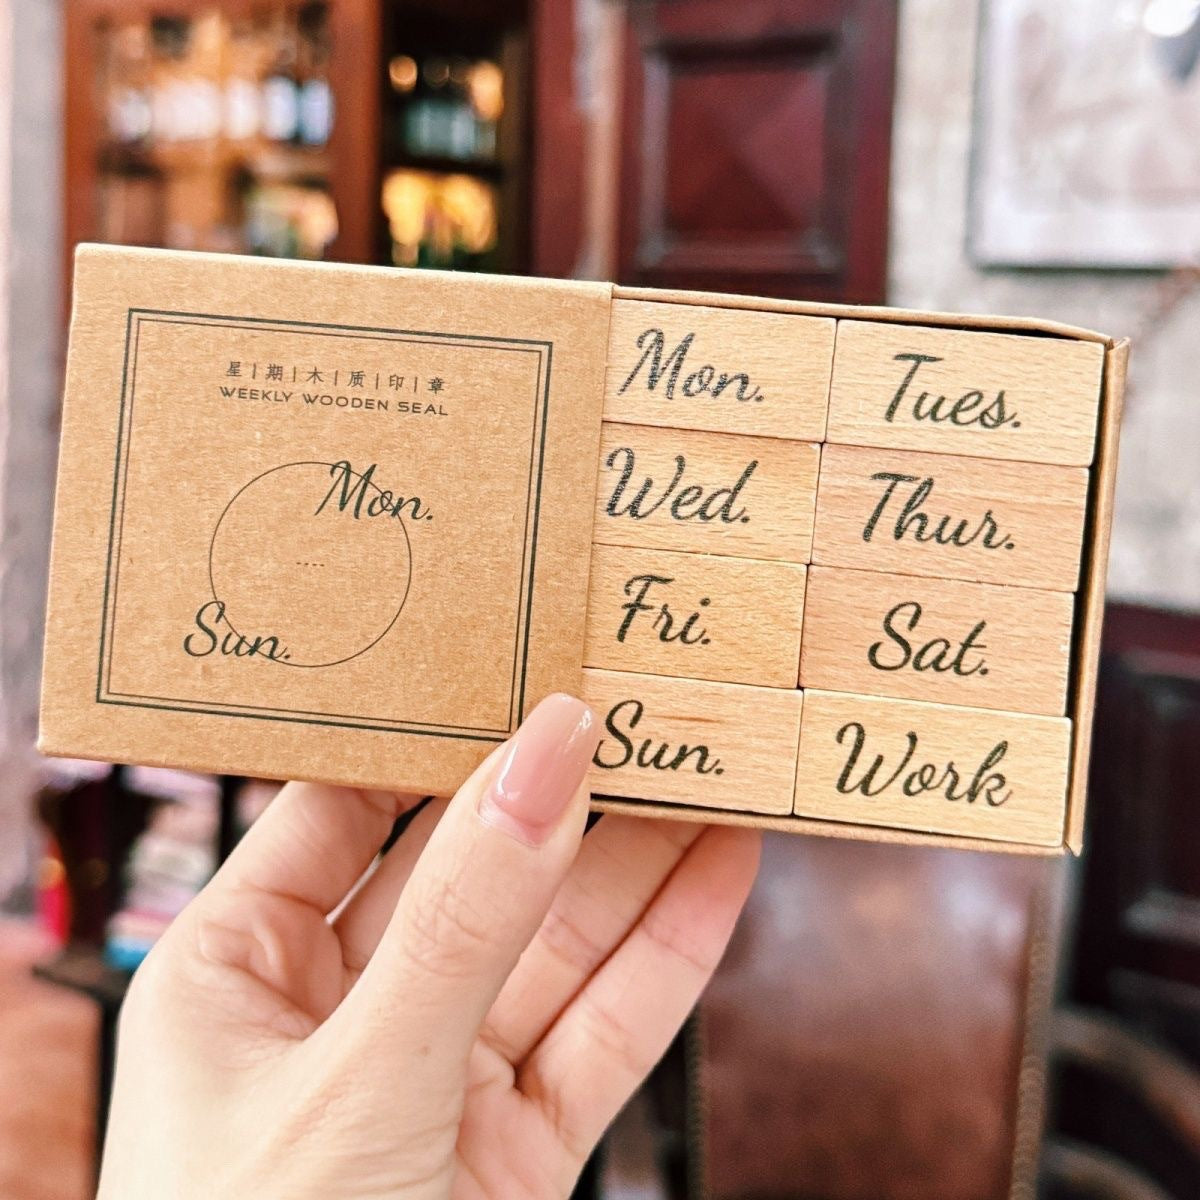 星|期|木|质|印|章
WEEKLY WOODEN SEAL
Mon.
----
Sun.
Mon.
Tues.
Wed.
Thur.
Fri.
Sat.
Sun.
Work